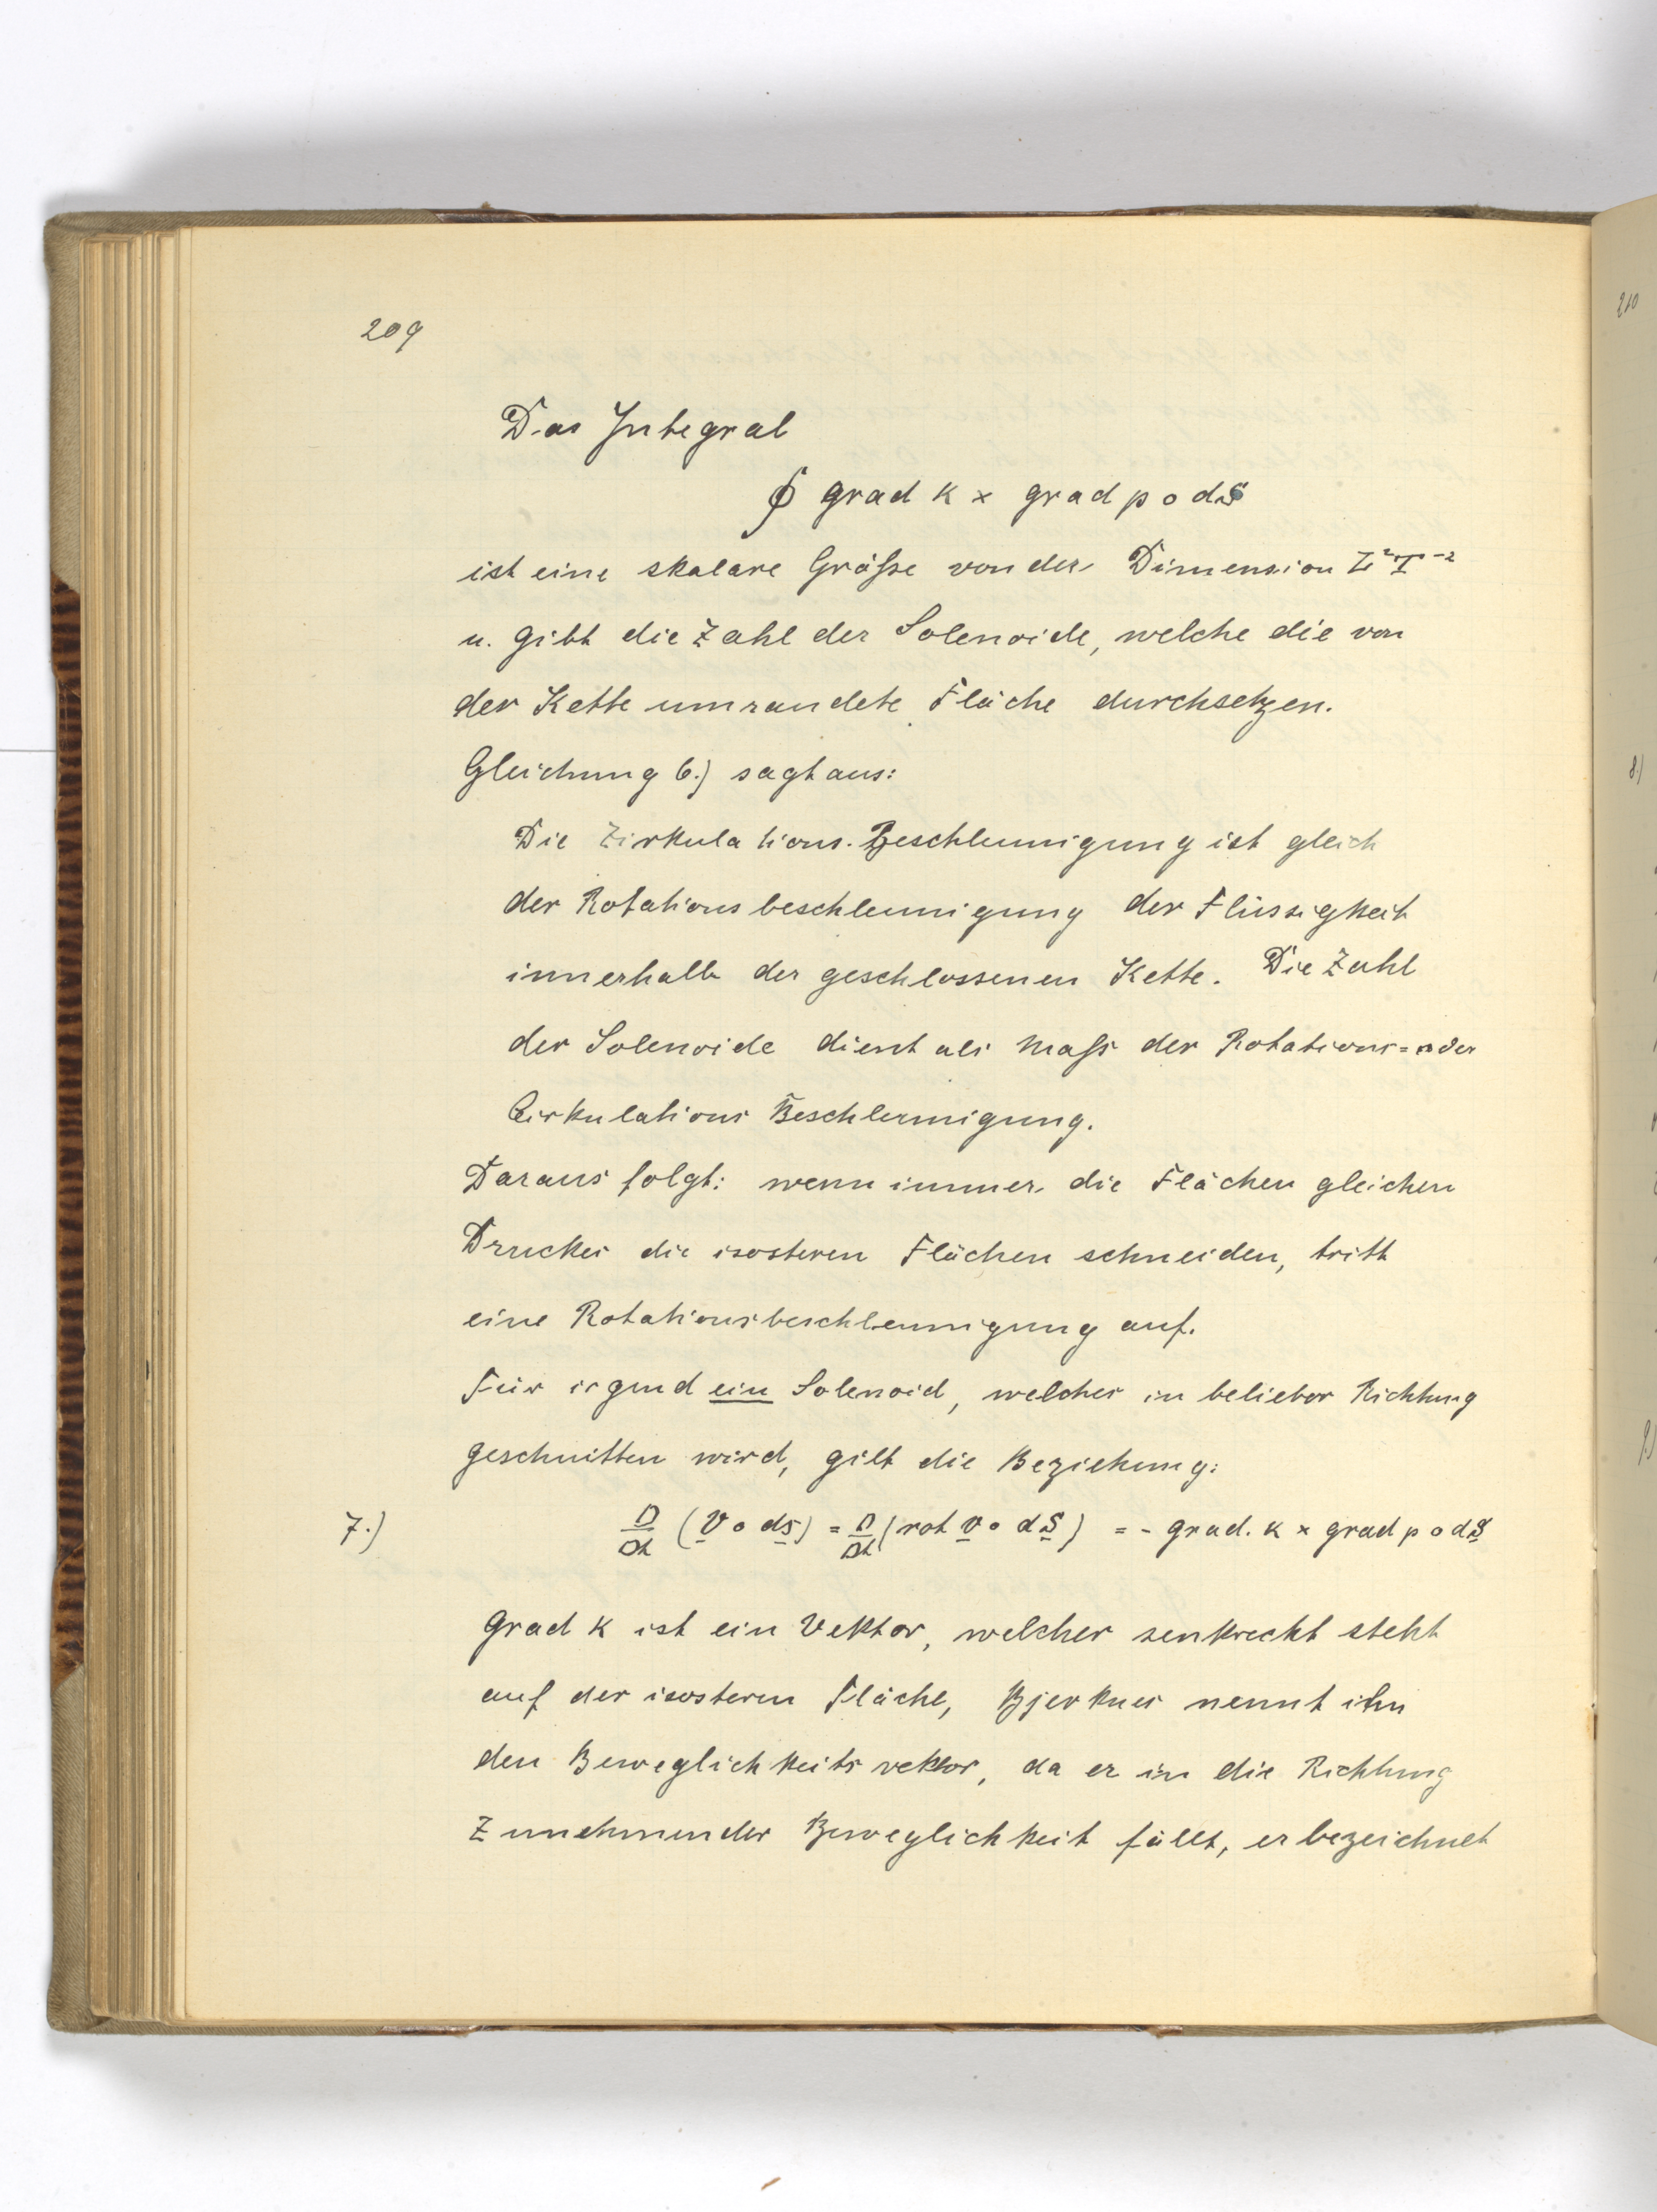 209
Das Integral
∮ grad k × grad p ∘ dS
ist eine skalare Größe von der Dimension L²T⁻²
u. gibt die Zahl der Solenoide, welche die von
der Kette umrandete Fläche durchsetzen.
Gleichung 6.) sagt aus:
Die Zirkulations-Beschleunigung ist gleich
der Rotationsbeschleunigung der Flüssigkeit
innerhalb der geschlossenen Kette. Die Zahl
der Solenoide dient als Maß der Rotations= oder
Cirkulations Beschleunigung.
Daraus folgt: wenn immer die Flächen gleichen
Druckes die isosteren Flächen schneiden, tritt
eine Rotationsbeschleunigung auf.
Für irgend ein Solenoid, welches in belieber Richtung
geschnitten wird, gilt die Beziehung:
7.) D/Dt (v ∘ ds) = D/Dt (rot v ∘ dS) = - grad. k × grad p ∘ dS
grad k ist ein Vektor, welcher senkrecht steht
auf der isosteren Fläche, Bjerknes nennt ihn
den Beweglichkeitsvektor, da er in die Richtung
zunehmender Beweglichkeit fällt, er bezeichnet
210
8.)
9)